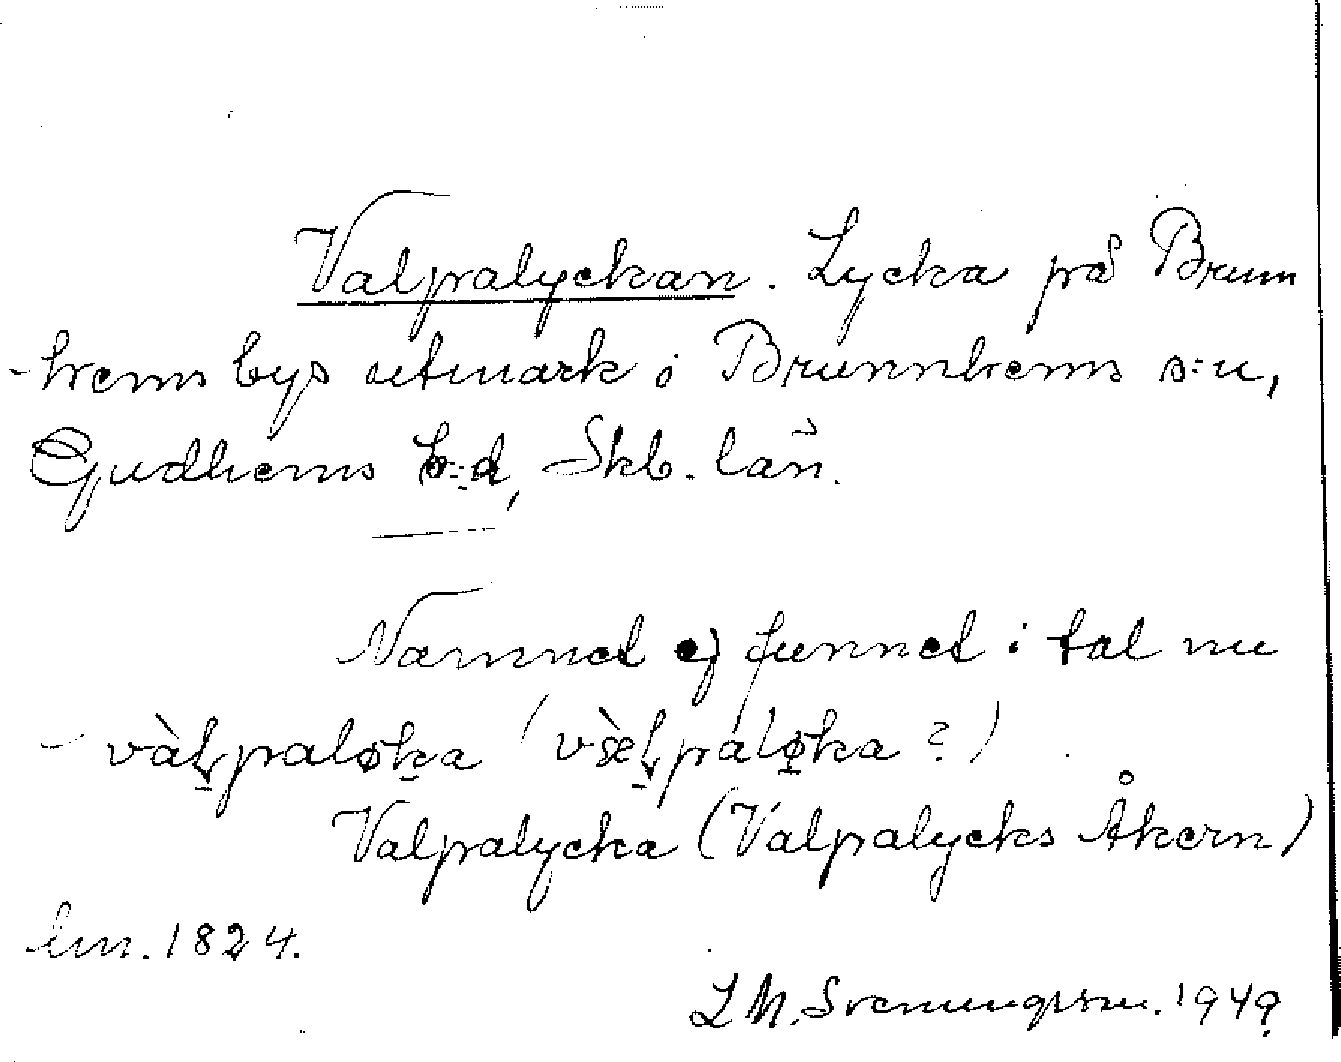 Valpalyckan. Lycka på Brunn
-hems bys utmark i Brunnhems s:n,
Gudhems h:d, Skb. län.
Namnet ej funnet i tal nu
- vàḷpaløḵa (vàeḷpaló̱ka?)
Valpalycka (Valpalycks Åkern)
lm. 1824.
L M. Svenungsson. 1949